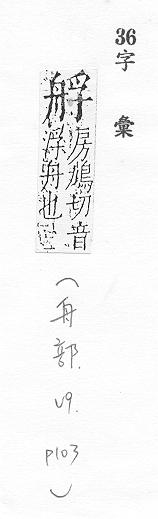 36
字彙
艀房鳩切音
浮舟也
(舟部.
V9.
P103
)